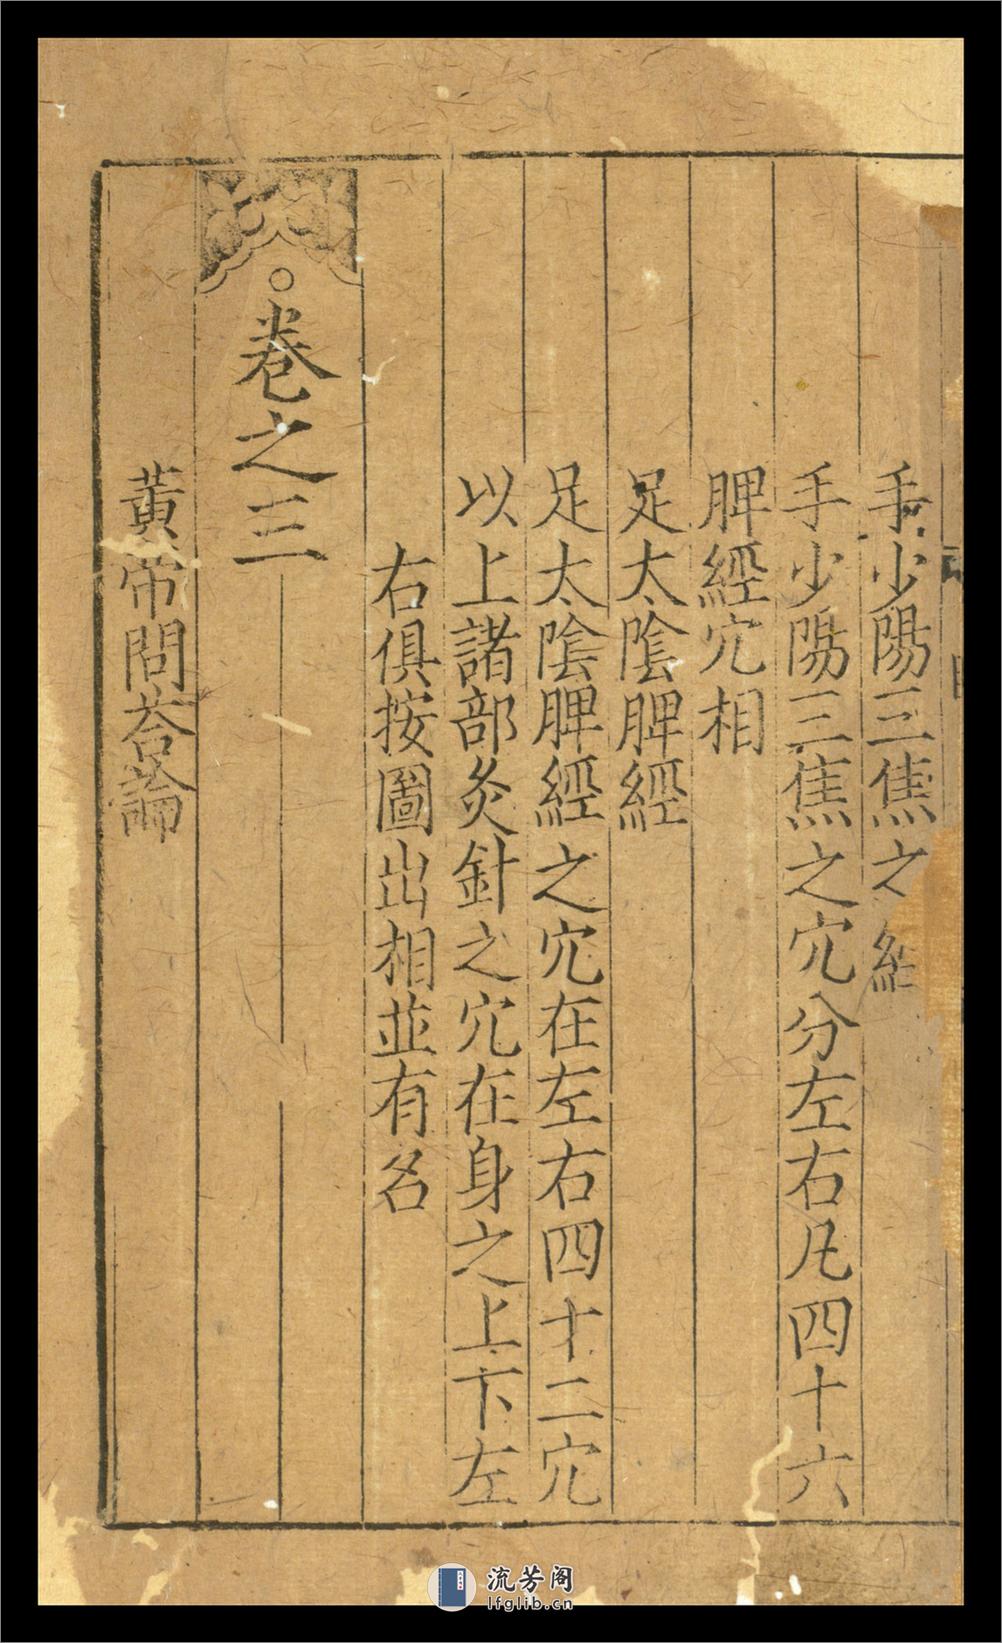 手少陽三焦之經
手少陽三焦之穴分左右凡四十六
脾經穴相
足太陰脾經
足太陰脾經之穴在左右四十二穴
以上諸部灸針之穴在身之上下左
右俱按圖出相並有名
○卷之三
黃帝問荅論
流芳阁
lfglib.cn